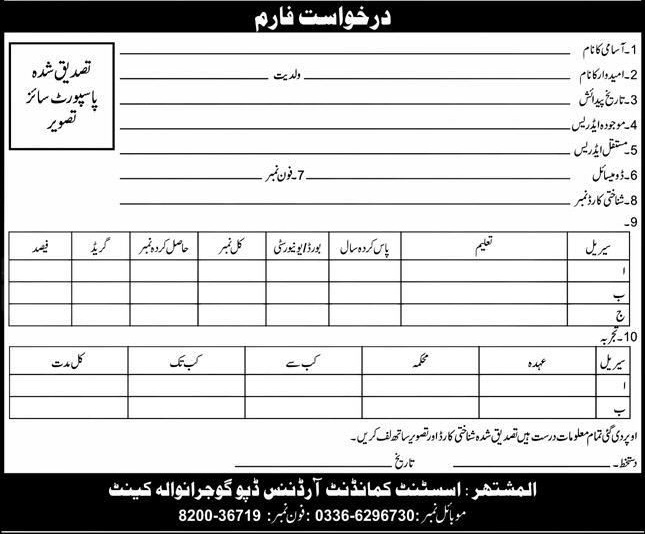 درخواست فارم
تصدیق شدہ
پاسپورٹ سائز
تصویر
1۔ آسامی کا نام
2۔ امیدوار کا نام ولدیت
3۔ تاریخ پیدائش
4۔ موجودہ ایڈریس
5۔ مستقل ایڈریس
6۔ ڈومیسائل 7۔ فون نمبر
8۔ شناختی کارڈ نمبر
9۔
سیریل تعلیم پاس کردہ سال بورڈ/یونیورسٹی کل نمبر حاصل کردہ نمبر گریڈ فیصد
ا
ب
ج
10۔ تجربہ
سیریل عہدہ محکمہ کب سے کب تک کل مدت
ا
ب
اوپر دی گئی تمام معلومات درست ہیں تصدیق شدہ شناختی کارڈ اور تصویر ساتھ لف کریں۔
دستخط۔ تاریخ
المشتھر: اسسٹنٹ کمانڈنٹ آرڈننس ڈپو گوجرانوالہ کینٹ
موبائل نمبر: 0336-6296730 :فون نمبر: 8200-36719